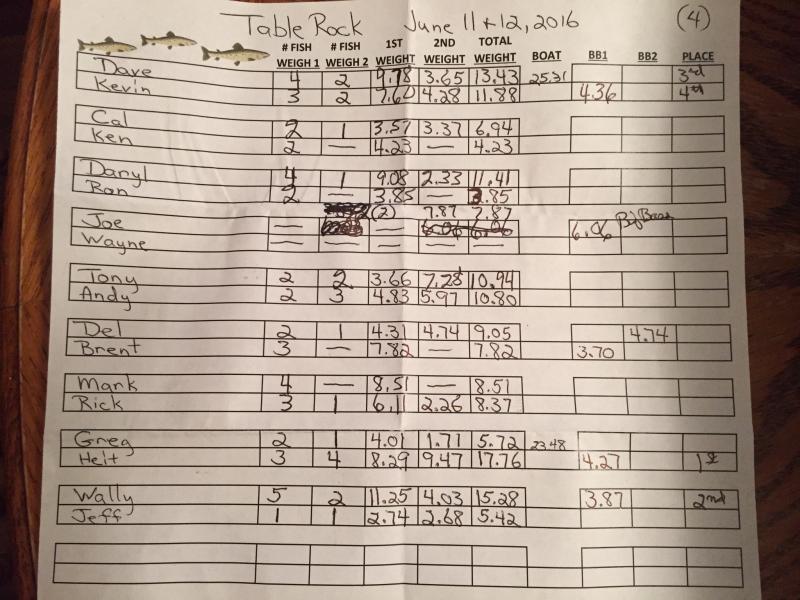 Table Rock June 11 + 12, 2016 (4)
# FISH # FISH 1ST 2ND TOTAL
WEIGH 1 WEIGH 2 WEIGHT WEIGHT WEIGHT BOAT BB1 BB2 PLACE
Dave 4 2 9.78 3.65 13.43 25.31 3rd
Kevin 3 2 7.60 4.28 11.88 4.36 4th
Cal 2 1 3.57 3.37 6.94
Ken 2 — 4.23 — 4.23
Daryl 4 1 9.08 2.33 11.41
Ron 2 — 3.85 — 3.85
Joe — (2) — 7.87 7.87 6.06 Big Bass
Wayne — — — — —
Tony 2 2 3.66 7.28 10.94
Andy 2 3 4.83 5.97 10.80
Del 2 1 4.31 4.74 9.05 4.74
Brent 3 — 7.82 — 7.82 3.70
Mark 4 — 8.51 — 8.51
Rick 3 1 6.11 2.26 8.37
Greg 2 1 4.01 1.71 5.72 23.48
Heit 3 4 8.29 9.47 17.76 4.27 1st
Wally 5 2 11.25 4.03 15.28 3.87 2nd
Jeff 1 1 2.74 2.68 5.42